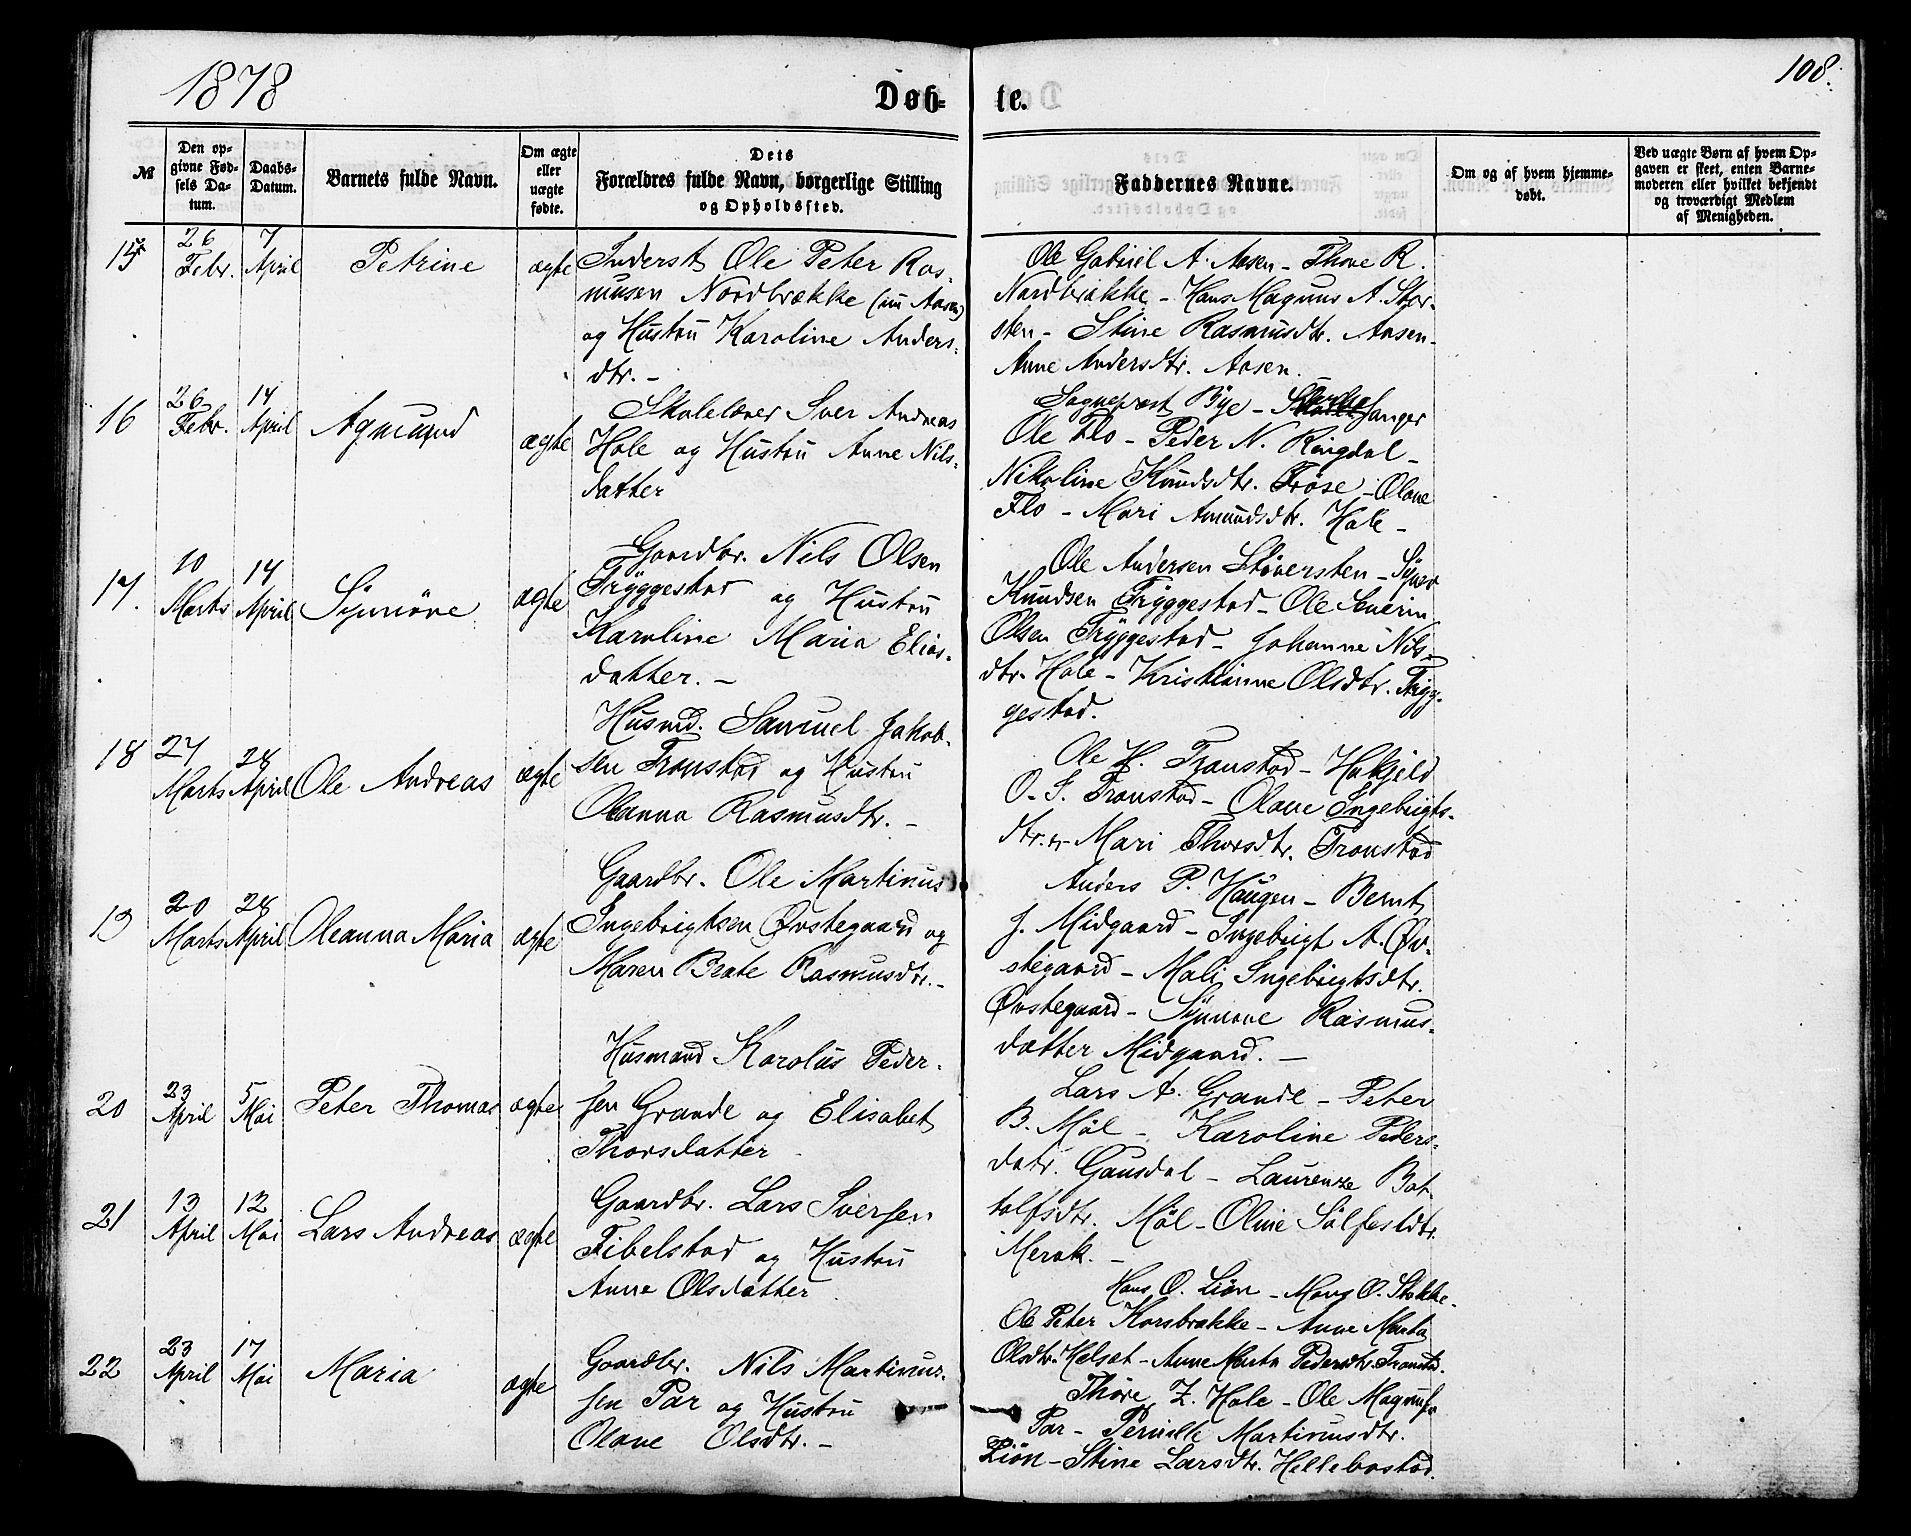 1878
108.
Døb-
te.
№
Den op-
givne Fød-
sels Da-
tum.
Daabs-
Datum.
Barnets fulde Navn.
Om ægte
eller
uægte
fødte.
Dets
Forældres fulde Navn, borgerlige Stilling
og Opholdssted.
Faddernes Navne.
Om og af hvem hjemme-
døbt.
Ved uægte Børn af hvem Op-
gaven er skeet, enten Barne-
moderen eller hvilket bekjendt
og troværdigt Medlem
af Menigheden.
15
26
Febr.
7
April
Petrine
ægte
Inderst Ole Peter Ras-
musen Nordbrække (nu Aasen)
og Hustru Karoline Anders-
dtr. -
Ole Gabriel A. Aasen - Thore R.
Nordbrække - Hans Magnus A. Stor-
sten - Stine Rasmusdtr. Aasen -
Anne Andersdtr. Aasen.
16
26
Febr.
14
April
Agmund
ægte
Skolelærer Iver Andreas
Hole og Hustru Anne Nils-
datter
Sognepræst Bye - Kirkesanger
Ole Flo - Peder N. Ringdal -
Nikoline Knudsdtr. Frøse - Olave
Flo - Mari Amundsdtr. Hole -
17.
10
Marts
14
April
Synnøve
ægte
Gaardbr. Nils Olsen
Tryggestad og Hustru
Karoline Maria Elias-
datter. -
Ole Andersen Støversten - Syver
Knudsen Tryggestad - Ole Severin
Olsen Tryggestad - Johanne Nils-
dtr. Hole - Kristianne Olsdtr. Tryg-
gestad.
18
27
Marts
28
April
Ole Andreas
ægte
Husmd. Samuel Jakob-
sen Tronstad og Hustru
Oleanna Rasmusdtr. -
Ole H. Tronstad - Hakjeld
O. S. Tronstad - Olave Ingebrigts-
dtr. - Mari Thorsdtr. Tronstad
19
20
Marts
28
April
Oleanna Maria
ægte
Gaardbr. Ole Martinus
Ingebrigtsen Øvstegaard og
Maren Beate Rasmusdtr. -
Anders P. Haugen - Bernt
J. Midgaard - Ingebrigt A. Øv-
stegaard - Mali Ingebrigtsdtr.
Øvstegaard - Synnove Rasmus-
datter Midgaard. -
20
23
April
5
Mai
Peter Thomas
ægte
Husmand Karolus Peder-
sen Grande og Elisabet
Thorsdatter -
Lars A. Grande - Peter
B. Møl - Karoline Peders-
datr. Gausdal - Laurenze Bot-
tolfsdtr. Møl - Oline Sølfestdtr.
Merok. -
21
13
April
12
Mai
Lars Andreas
ægte
Gaardbr. Lars Iversen
Fibelstad og Hustru
Anne Olsdatter
Hans O. Liøn - Mons O. Stokke -
Ole Peter Korsbrække - Anne Marta
Olsdtr. Helset - Anne Marta Pedersdtr. Tronstad.
22
23
April
17
Mai
Maria
ægte
Gaardbr. Nils Martinus-
sen Par og Hustru
Olave Olsdtr. -
Thore Z. Hole - Ole Magnusn
Par - Pernille Martinusdtr.
Liøn - Stine Larsdtr. Hellebostad.